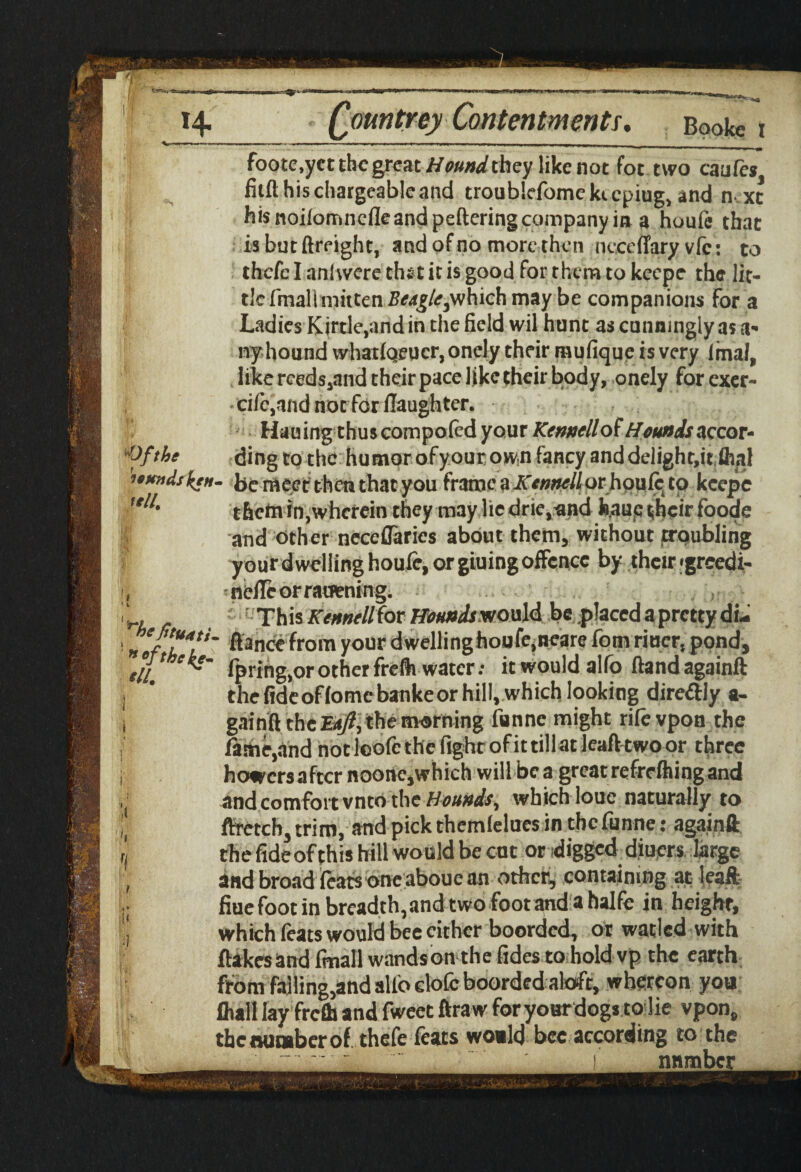 14 Countrey Contentments. Booke 1
foote,yet the great Hound they like not for two cauſes,
firſt his chargeable and troubleſome keepiug, and next
his noiſomneſſe and peſtering company in a houſe that
is but ſtreight, and of no more then neceſſary vſe: to
theſe I anſwere that it is good for them to keepe the lit-
tle ſmall mitten Beagle,which may be companions for a
Ladies Kirtle,and in the field wil hunt as cunningly as a-
ny hound whatſoeuer, onely their muſique is very ſmal,
like reeds,and their pace like their body, onely for exer-
ciſe,and not for ſlaughter.
Hauing thus compoſed your Kennell of Hounds accor-
Of the
ding to the humor of your own fancy and delight,it ſhal
hounds ken-
be meet then that you frame a Kennell or houſe to keepe
nell.
them in,wherein they may lie drie,and haue their foode
and other neceſſaries about them, without troubling
your dwelling houſe, or giuing offence by their greedi-
neſſe or rauening.
This Kennell for Hounds would be placed a pretty di-
The ſituati-
ſtance from your dwelling houſe,neare ſom riuer, pond,
n of the ke-
ſpring,or other freſh water: it would alſo ſtand againſt
ell.
the ſide of ſome banke or hill, which looking directly a-
gainſt the Eaſt, the morning ſunne might riſe vpon the
ſame,and not looſe the ſight of it till at leaſt two or three
howers after noone,which will be a great refreſhing and
and comfort vnto the Hounds, which loue naturally to
ſtretch, trim, and pick themſelues in the ſunne: againſt
the ſide of this hill would be cut or digged diuers large
and broad ſeats one aboue an other, containing at leaſt
fiue foot in breadth,and two foot and a halfe in height,
which ſeats would bee either boorded, or watled with
ſtakes and ſmall wands on the ſides to hold vp the earth
from falling,and alſo cloſe boorded aloft, whereon you
ſhall lay freſh and ſweet ſtraw for your dogs to lie vpon,
the number of theſe ſeats would bee according to the
number